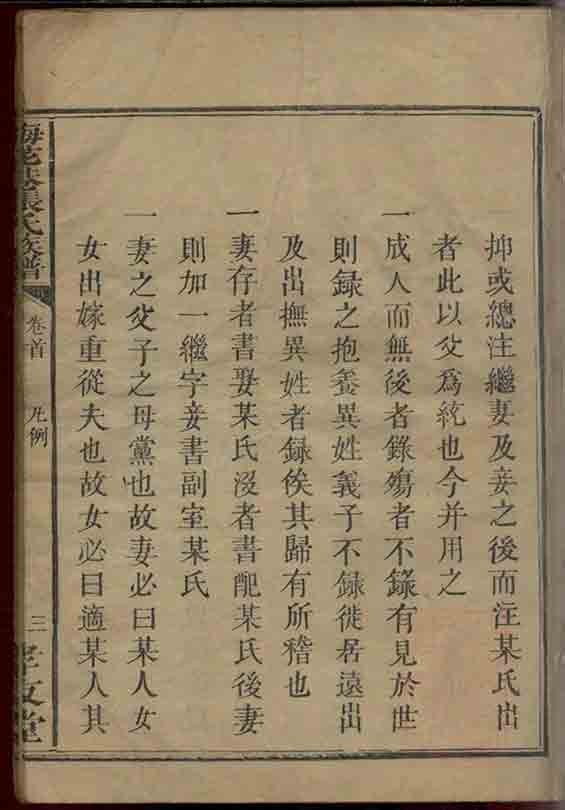 抑或總注繼妻及妾之後而注某氏出
者此以父為統也今并用之
一成人而無後者錄殤者不錄有見於世
則録之抱養異姓義子不録徙居遠出
及出撫異姓者録俟其歸有所稽也
一妻存者書娶某氏沒者書配某氏後妻
則加一繼字妾書副室某氏
一妻之父子之母黨也故妻必曰某人女
女出嫁重從夫也故女必曰適某人其
張氏族譜
卷首 凡例
三
孝友堂